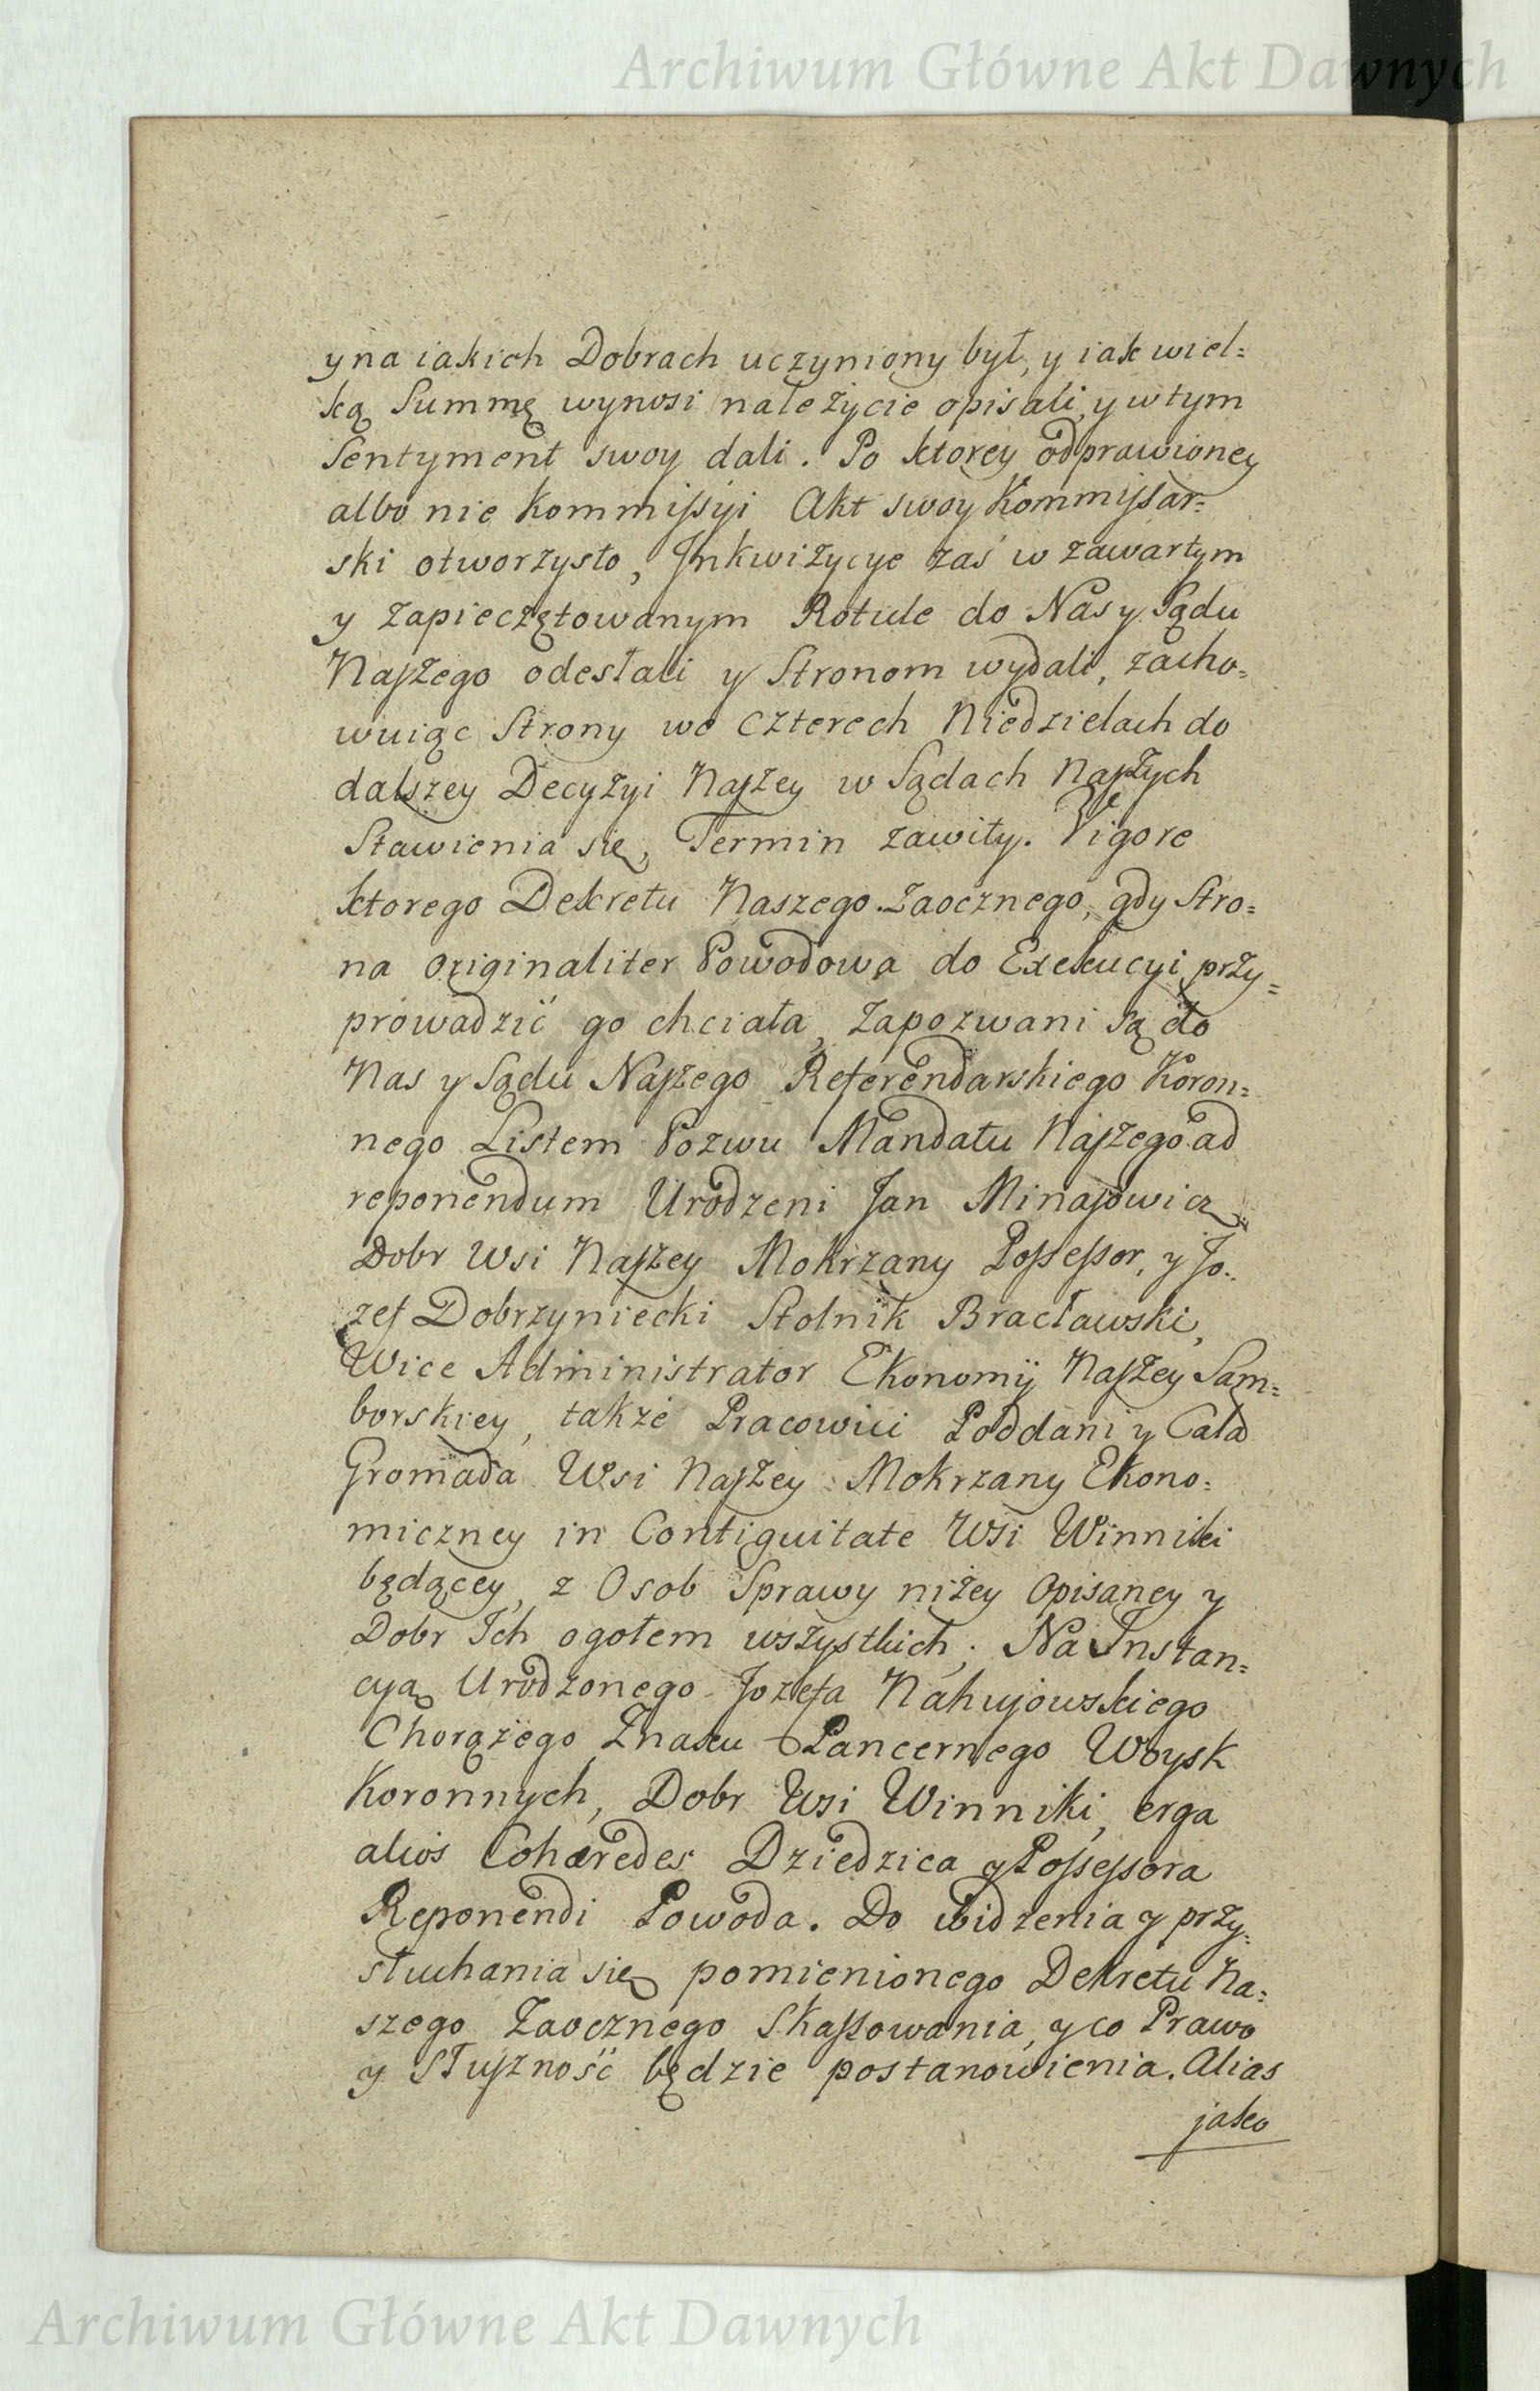 Archiwum Główne Akt Dawnych
y na iakich Dobrach uczyniony był, y iak wiel=
ką Summę wynosi należycie opisali, y w tym
Sentyment swoy dali. Po ktorey odprawioney
albo nie Kommissyi Akt swoy Kommissar=
ski otworzysto, Jnkwizycye zaś w zawartym
y zapieczętowanym Rotule do Nas y Sądu
Naszego odesłali y Stronom wydali, zacho=
wuiąc Strony we czterech Niedzielach do
dalszey Decyzyi Naszey w Sądach Naszych
Stawienia się, Termin zawity. Vigore
ktorego Dekretu Naszego Zaocznego, gdy Stro=
na Originaliter Powodowa do Exekucyi przy=
prowadzić go chciała, Zapozwani są do
Nas y Sądu Naszego Referendarskiego Koron=
nego Listem Pozwu Mandatu Naszego ad
reponendum Urodzeni Jan Minasowicz
Dobr Wsi Naszey Mokrzany Possessor, y Jo=
zef Dobrzyniecki Stolnik Bracławski,
Wice Administrator Ekonomij Naszey Sam=
borskiey, także Pracowici Poddani y Cała
Gromada Wsi Naszey Mokrzany Ekono=
miczney in Contiguitate Wsi Winniki
będącey, z Osob Sprawy niżey opisaney y
Dobr Ich ogołem wszystkich; Na Jnstan=
cyą Urodzonego Jozefa Nahujowskiego
Chorążego Znaku Pancernego Woysk
Koronnych, Dobr Wsi Winniki, erga
alios Cohæredes Dziedzica y Possessora
Reponendi Powoda. Do widzenia y przy=
słuchania się pomienionego Dekretu Na=
szego Zaocznego Skassowania, y co Prawo
y Słuszność będzie postanowienia. Alias
jako
Archiwum Główne Akt Dawnych